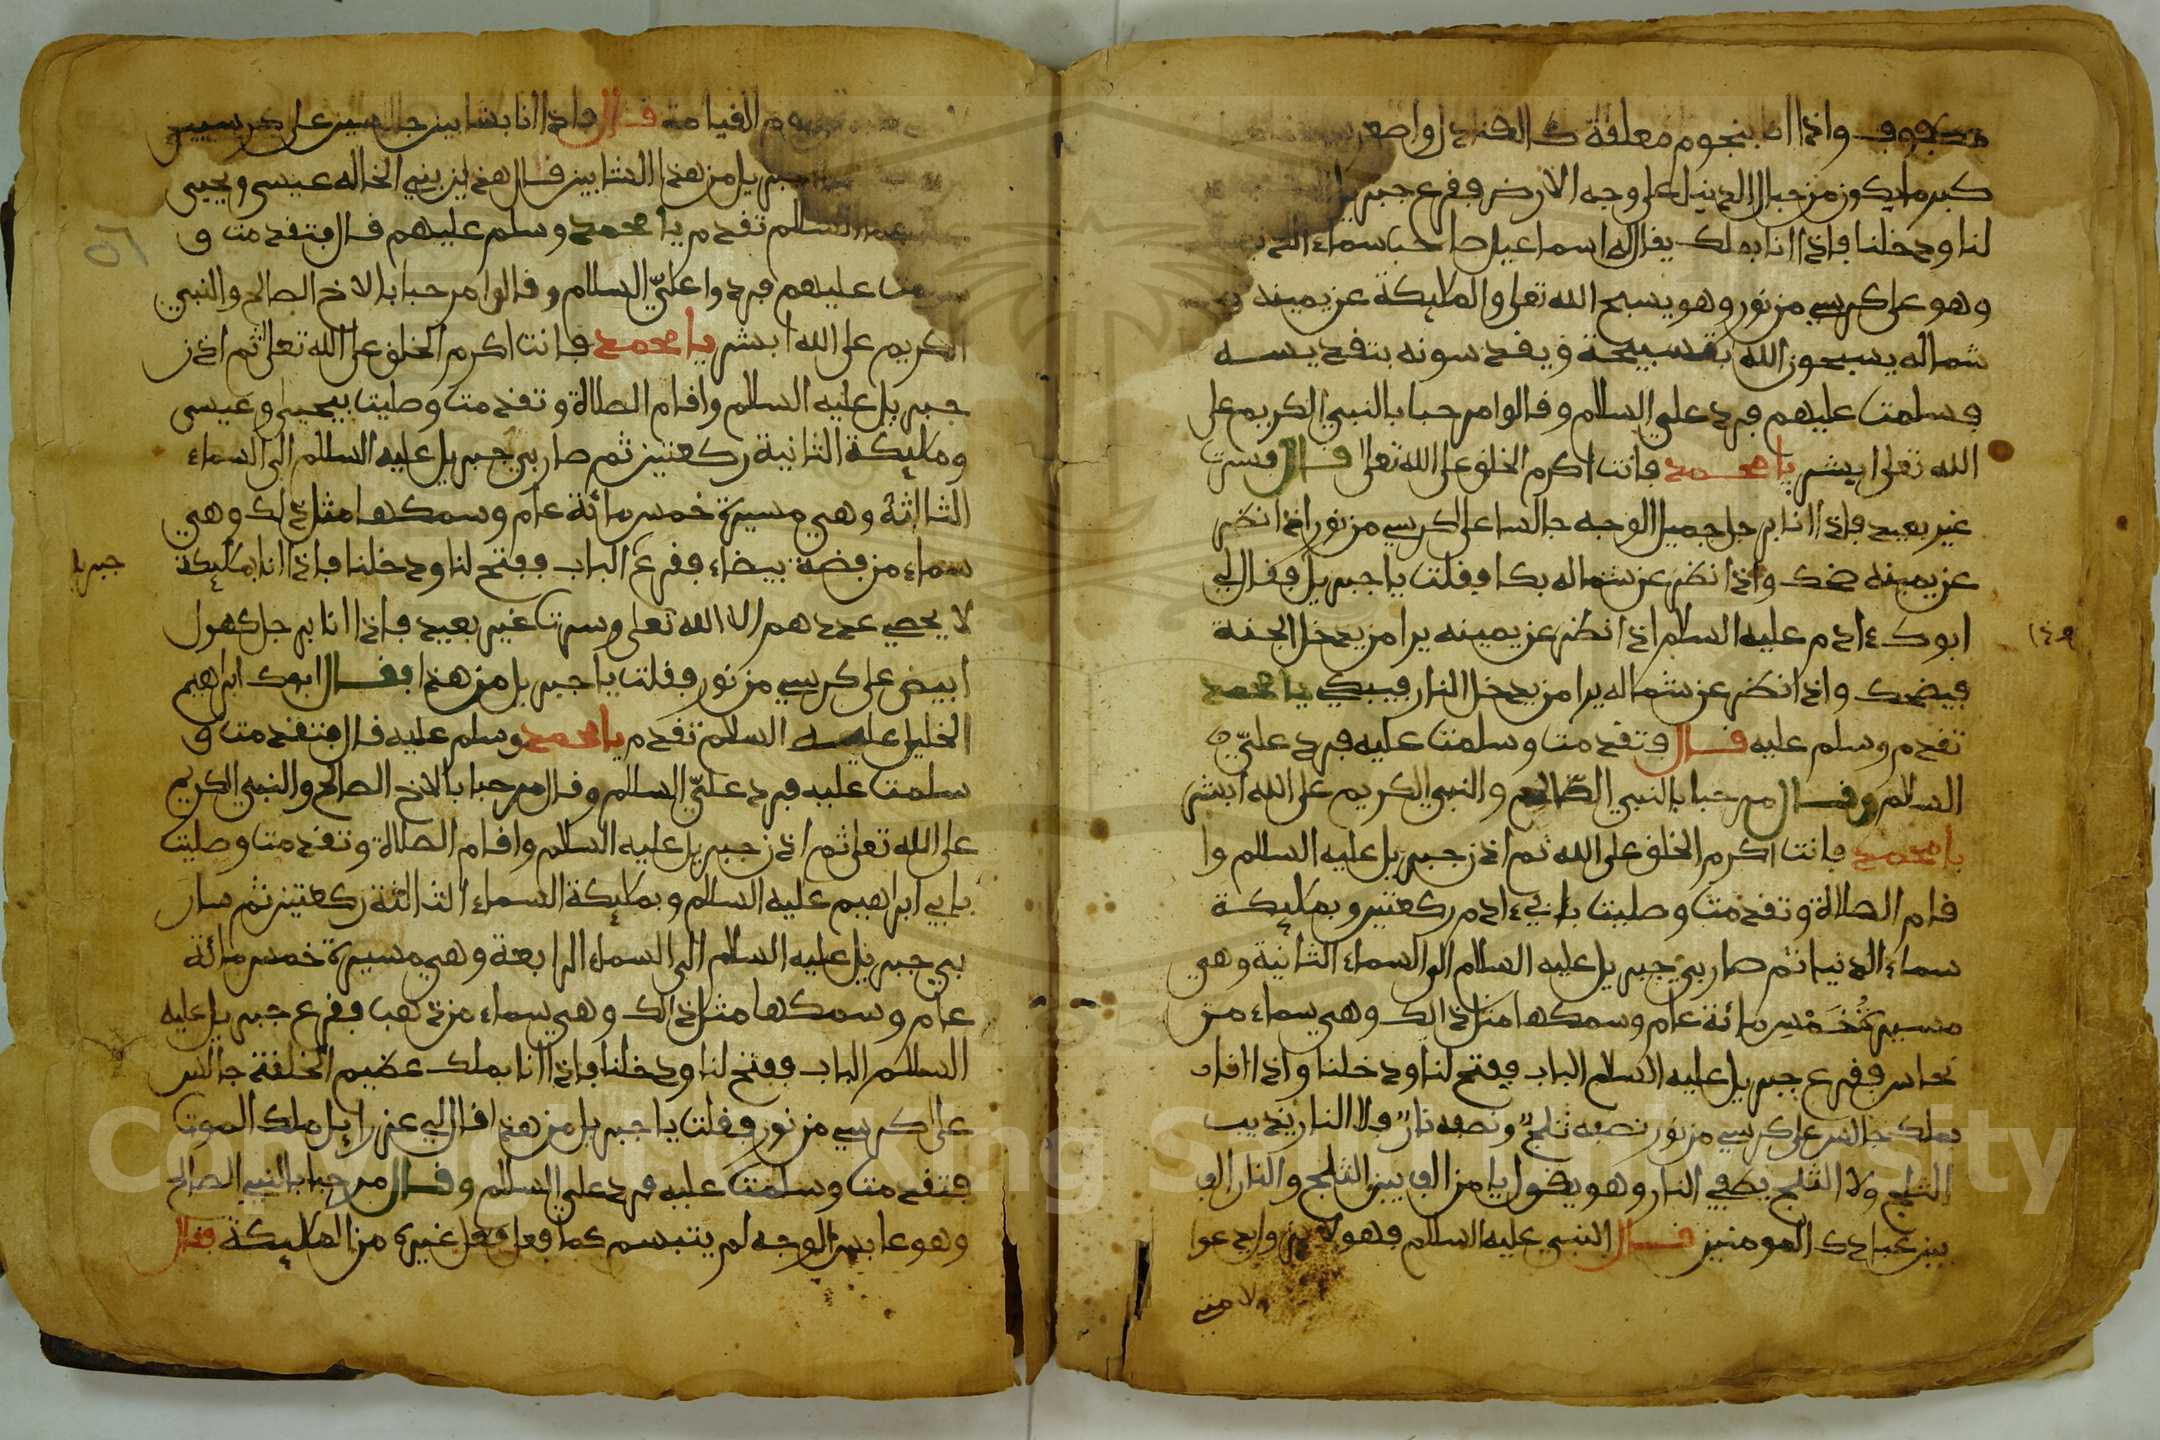 مكفوف واذا انا بنجوم معلقة كالقناديل واصغر
كبر ما يكون من جبال الدنيا على وجه الارض فقرع جبريل
لنا ودخلنا فاذا انا بملك يقال له اسماعيل صاحب سماء الدنيا
وهو على كرسي من نور وهو يسبح الله تعلى والمليكة عن يمينه
شماله يسبحون الله بتسبيحة ويقدسونه بتقديسه
فسلمت عليهم فرد علي السلام وقالوا مرحبا بالنبي الكريم على
الله تعلى ابشر يا محمد فانت اكرم الخلق على الله تعلا قال فسرت
غير بعيد فاذا انا برجل جميل الوجه جالسا على كرسي من نور اذا نظر
عن يمينه ضحك واذا نظر عن شماله بكا فقلت يا جبريل فقال لي
ابوك ءادم عليه السلام اذا نظر عن يمينه يرا من يدخل الجنة
فيضحك واذا نظر عن شماله يرا من يدخل النار فيبكي يا محمد
تقدم وسلم عليه قال فتقدمت وسلمت عليه فرد عليّ
السلام وقال مرحبا بالنبي الصالح والنبي الكريم على الله ابشر
يا محمد فانت اكرم الخلق على الله ثم اذن جبريل عليه السلام وا
قام الصلاة وتقدمت وصليت بابي ءادم ركعتين وبمليكة
سماء الدنيا ثم صار بي جبريل عليه السلام الى السماء الثانية وهي
مسيرة خمس مائة عام وسمكها مثل ذالك وهي سماء من
نحاس فقرع جبريل عليه السلام الباب ففتح لنا ودخلنا واذا انا
بملك جالس على كرسي من نور نصفه ثلج ونصفه نار فلا النار يذيب
الثلج ولا الثلج يطفي النار وهو يقول يا من الف بين الثلج والنار الف
بين عبادك المومنين قال النبي عليه السلام فهولاء
يوم القيامة قال فاذا انا بشابين جالسين على كرسيين
جبريل من هذا الشابين قال هذين بني الخاله عيسى ويحيى
السلم تقدم يا محمد وسلم عليهم قال فتقدمت و
عليهم فردوا عليّ السلام وقالوا مرحبا بالاخ الصالح والنبي
الكريم على الله ابشر يا محمد فانت اكرم الخلق على الله تعلى ثم اذن
جبريل عليه السلام واقام الصلاة وتقدمت وصليت بيحيى وعيسى
ومليكة الثانية ركعتين ثم صار بي جبريل عليه السلام الى السماء
الثالثة وهي مسيرة خمس مائة عام وسمكها مثل ذلك وهي
سماء من فضة بيضاء فقرع الباب ففتح لنا ودخلنا فاذا انا بمليكة
جبريل
لا يحصي عددهم الا الله تعلى وسرت غير بعيد فاذا انا برجل كهول
ابيض على كرسي من نور فقلت يا جبريل من هذا فقال ابوك ابراهيم
الخليل عليه السلام تقدم يا محمد وسلم عليه قال فتقدمت و
سلمت عليه فرد عليّ السلام وقال مرحبا بالاخ الصالح والنبي الكريم
على الله تعلى ثم اذن جبريل عليه السلام واقام الصلاة وتقدمت وصليت
بابي ابراهيم عليه السلام وبمليكة السماء الثالثة ركعتين ثم سار
بي جبريل عليه السلام الى السماء الرابعة وهي مسيرة خمس مائة
عام وسمكها مثل ذالك وهي سماء من ذهب فقرع جبريل عليه
السلام الباب ففتح لنا ودخلنا فاذا انا بملك عظيم الخلقة جالس
على كرسي من نور فقلت يا جبريل من هذا قال لي عزرايل ملك الموت
فتقدمت وسلمت عليه فرد علي السلام وقال مرحبا بالنبي الصالح
وهو عابس الوجه لم يتبسم كما فعل غيره من المليكة فقال
Copyright © King Saud University